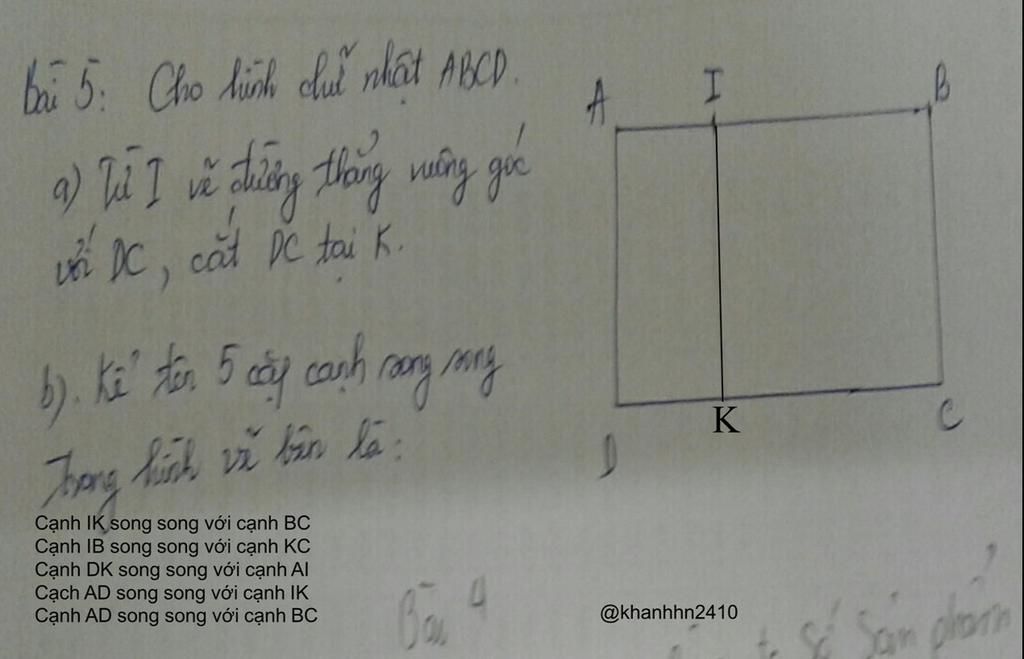 Bài 5: Cho hình chữ nhật ABCD.
a) Từ I vẽ đường thẳng vuông góc
với DC, cắt DC tại K.
b). Kể tên 5 cặp cạnh song song
Trong hình vẽ bên là:
Cạnh IK song song với cạnh BC
Cạnh IB song song với cạnh KC
Cạnh DK song song với cạnh AI
Cạch AD song song với cạnh IK
Cạnh AD song song với cạnh BC
A I B
D K C
Bài 4
@khanhhn2410
số sản phẩm